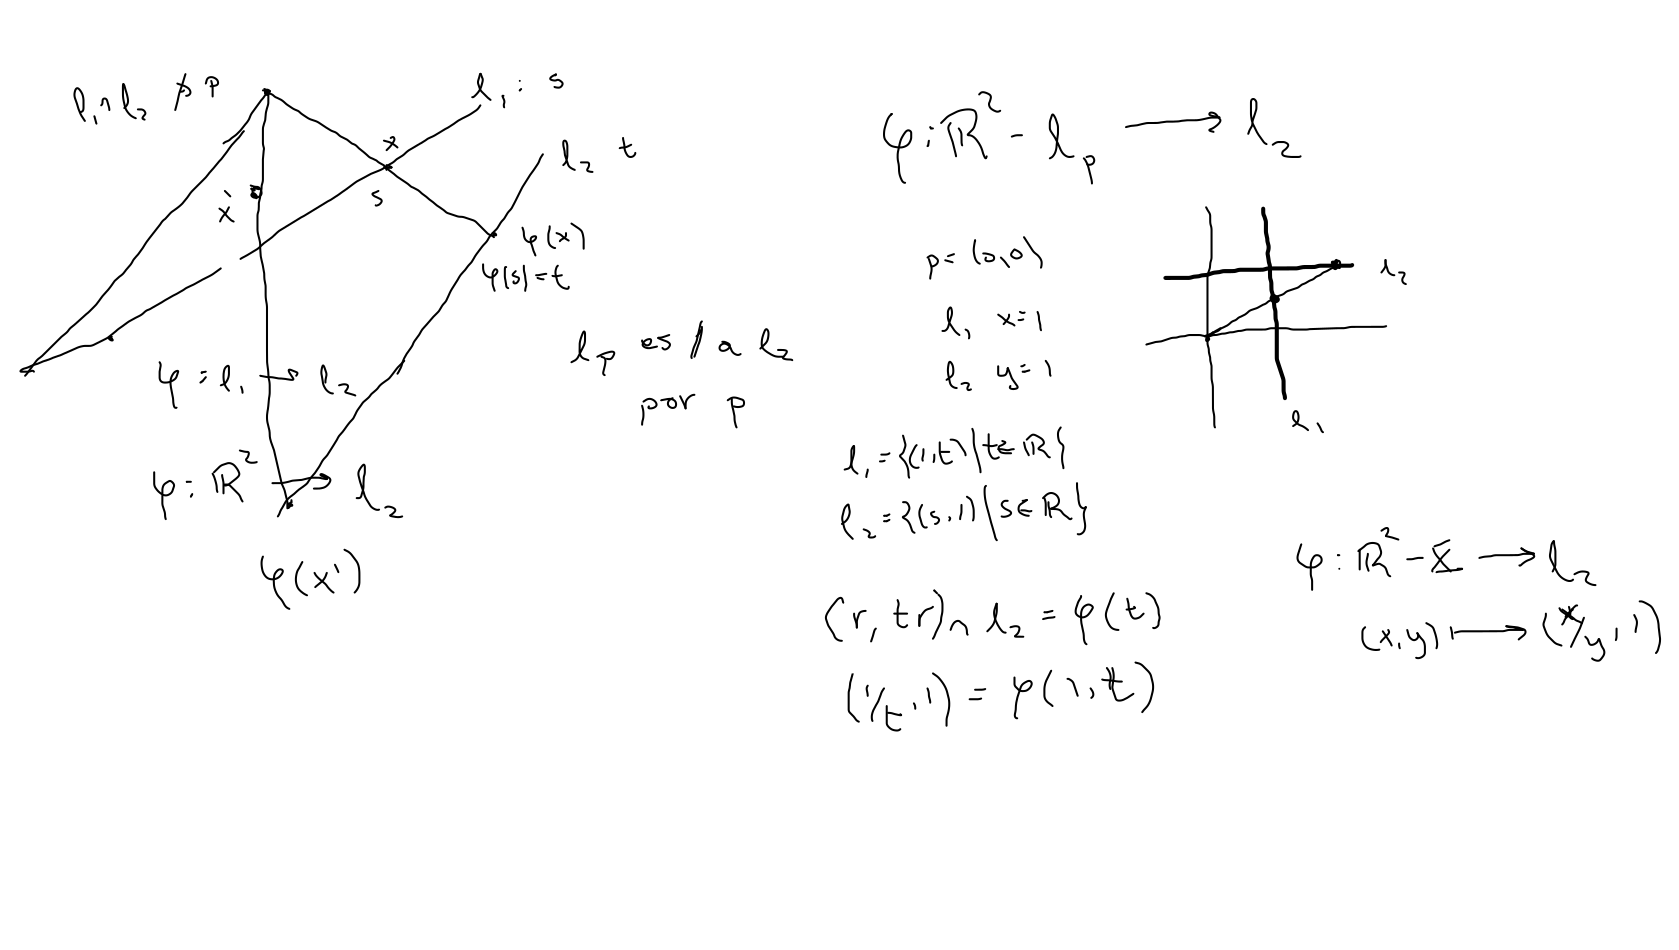 l₁∩l₂ ∌ p
l₁ : s
l₂ t
x
s
x'
φ(x)
φ(s)=t
φ : l₁ → l₂
φ : ℝ² → l₂
φ(x')
l_p es // a l₂
por p
φ : ℝ² - l_p → l₂
p = (0,0)
l₁ x=1
l₂ y=1
l₂
l₁
l₁ = {(1,t) | t∈ℝ}
l₂ = {(s,1) | s∈ℝ}
(r, tr) ∩ l₂ = φ(t)
(1/t, 1) = φ(1,t)
φ : ℝ² - X → l₂
(x,y) ↦ (x/y, 1)